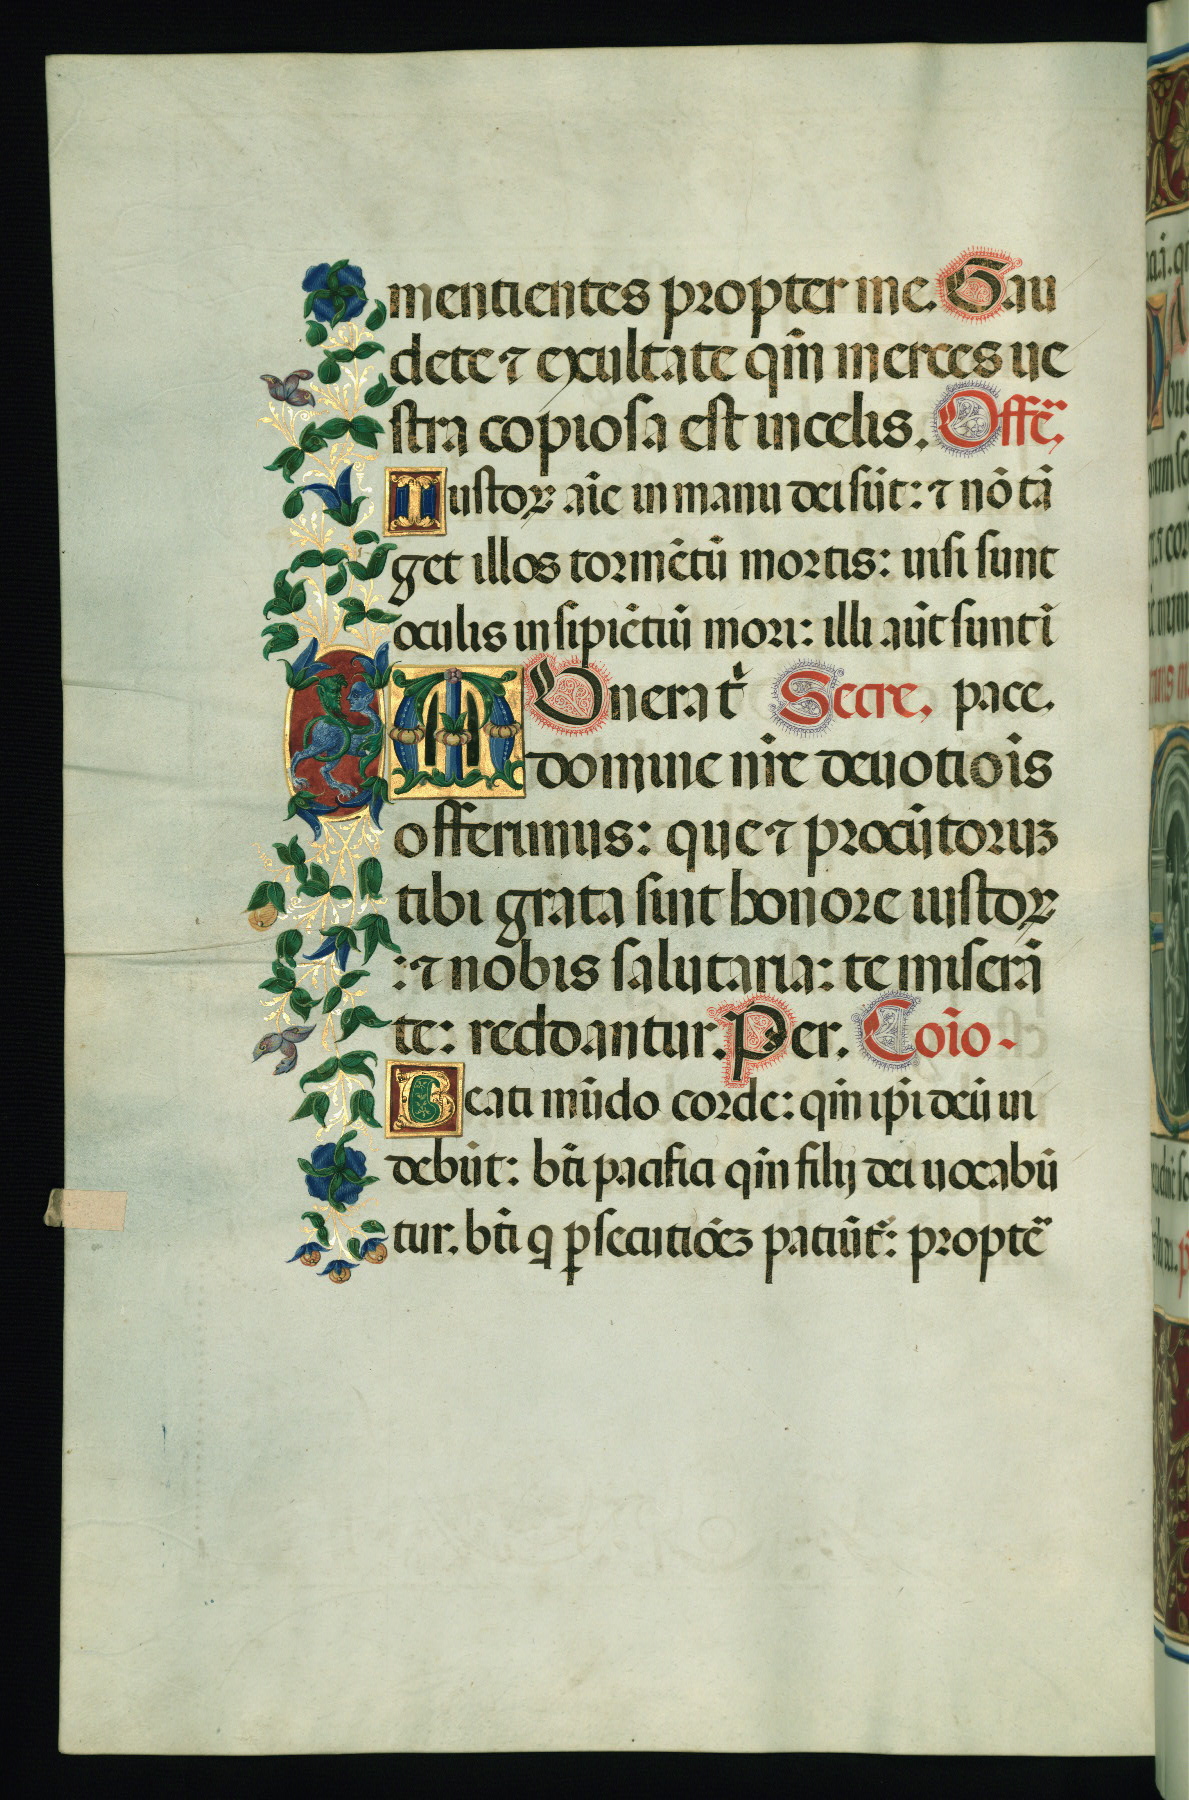 mentientes propter me. Gau
dete ⁊ exultate qm̄ merces ue
stra copiosa est in celis. Offē.
Iustoꝝ aīe in manu dei sūt: ⁊ nō tā
get illos tormētū mortis: uisi sunt
oculis insipiētiū mori: illi aūt sunt ī
pace. Secre. Munera tͥ
domine nr̄e deuotiōis
offerimus: que ⁊ pro cūtoruꝫ
tibi grata sint honore iustoꝝ
: ⁊ nobis salutaria: te miserā
te: reddantur. Per. Coīo.
Beati mūdo corde: qm̄ ip̄i deū ui
debūt: bt̄i pacifici qm̄ filij dei uocabū
tur. bt̄i q ꝑsecutiōeꝫ patiūt᷑: proptē